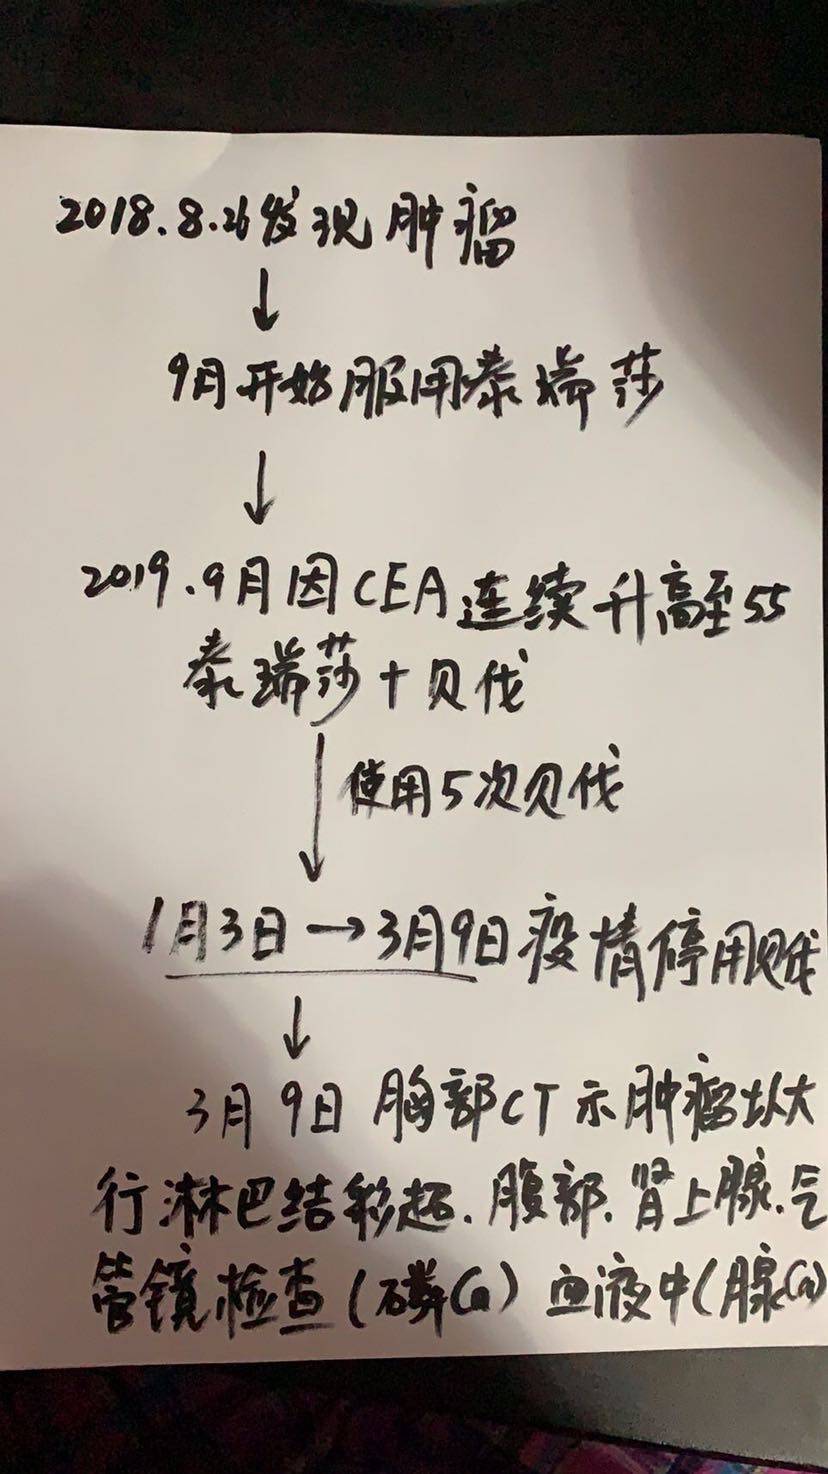 2018.8.26发现肿瘤
↓
9月开始服用泰瑞莎
↓
2019.9月因CEA连续升高至55
泰瑞莎+贝伐
↓使用5次贝伐
1月3日→3月9日疫情停用贝伐
↓
3月9日 胸部CT示肿瘤增大
行淋巴结彩超.腹部.肾上腺.气
管镜检查(磷Ca) 血液中(腺Ca)